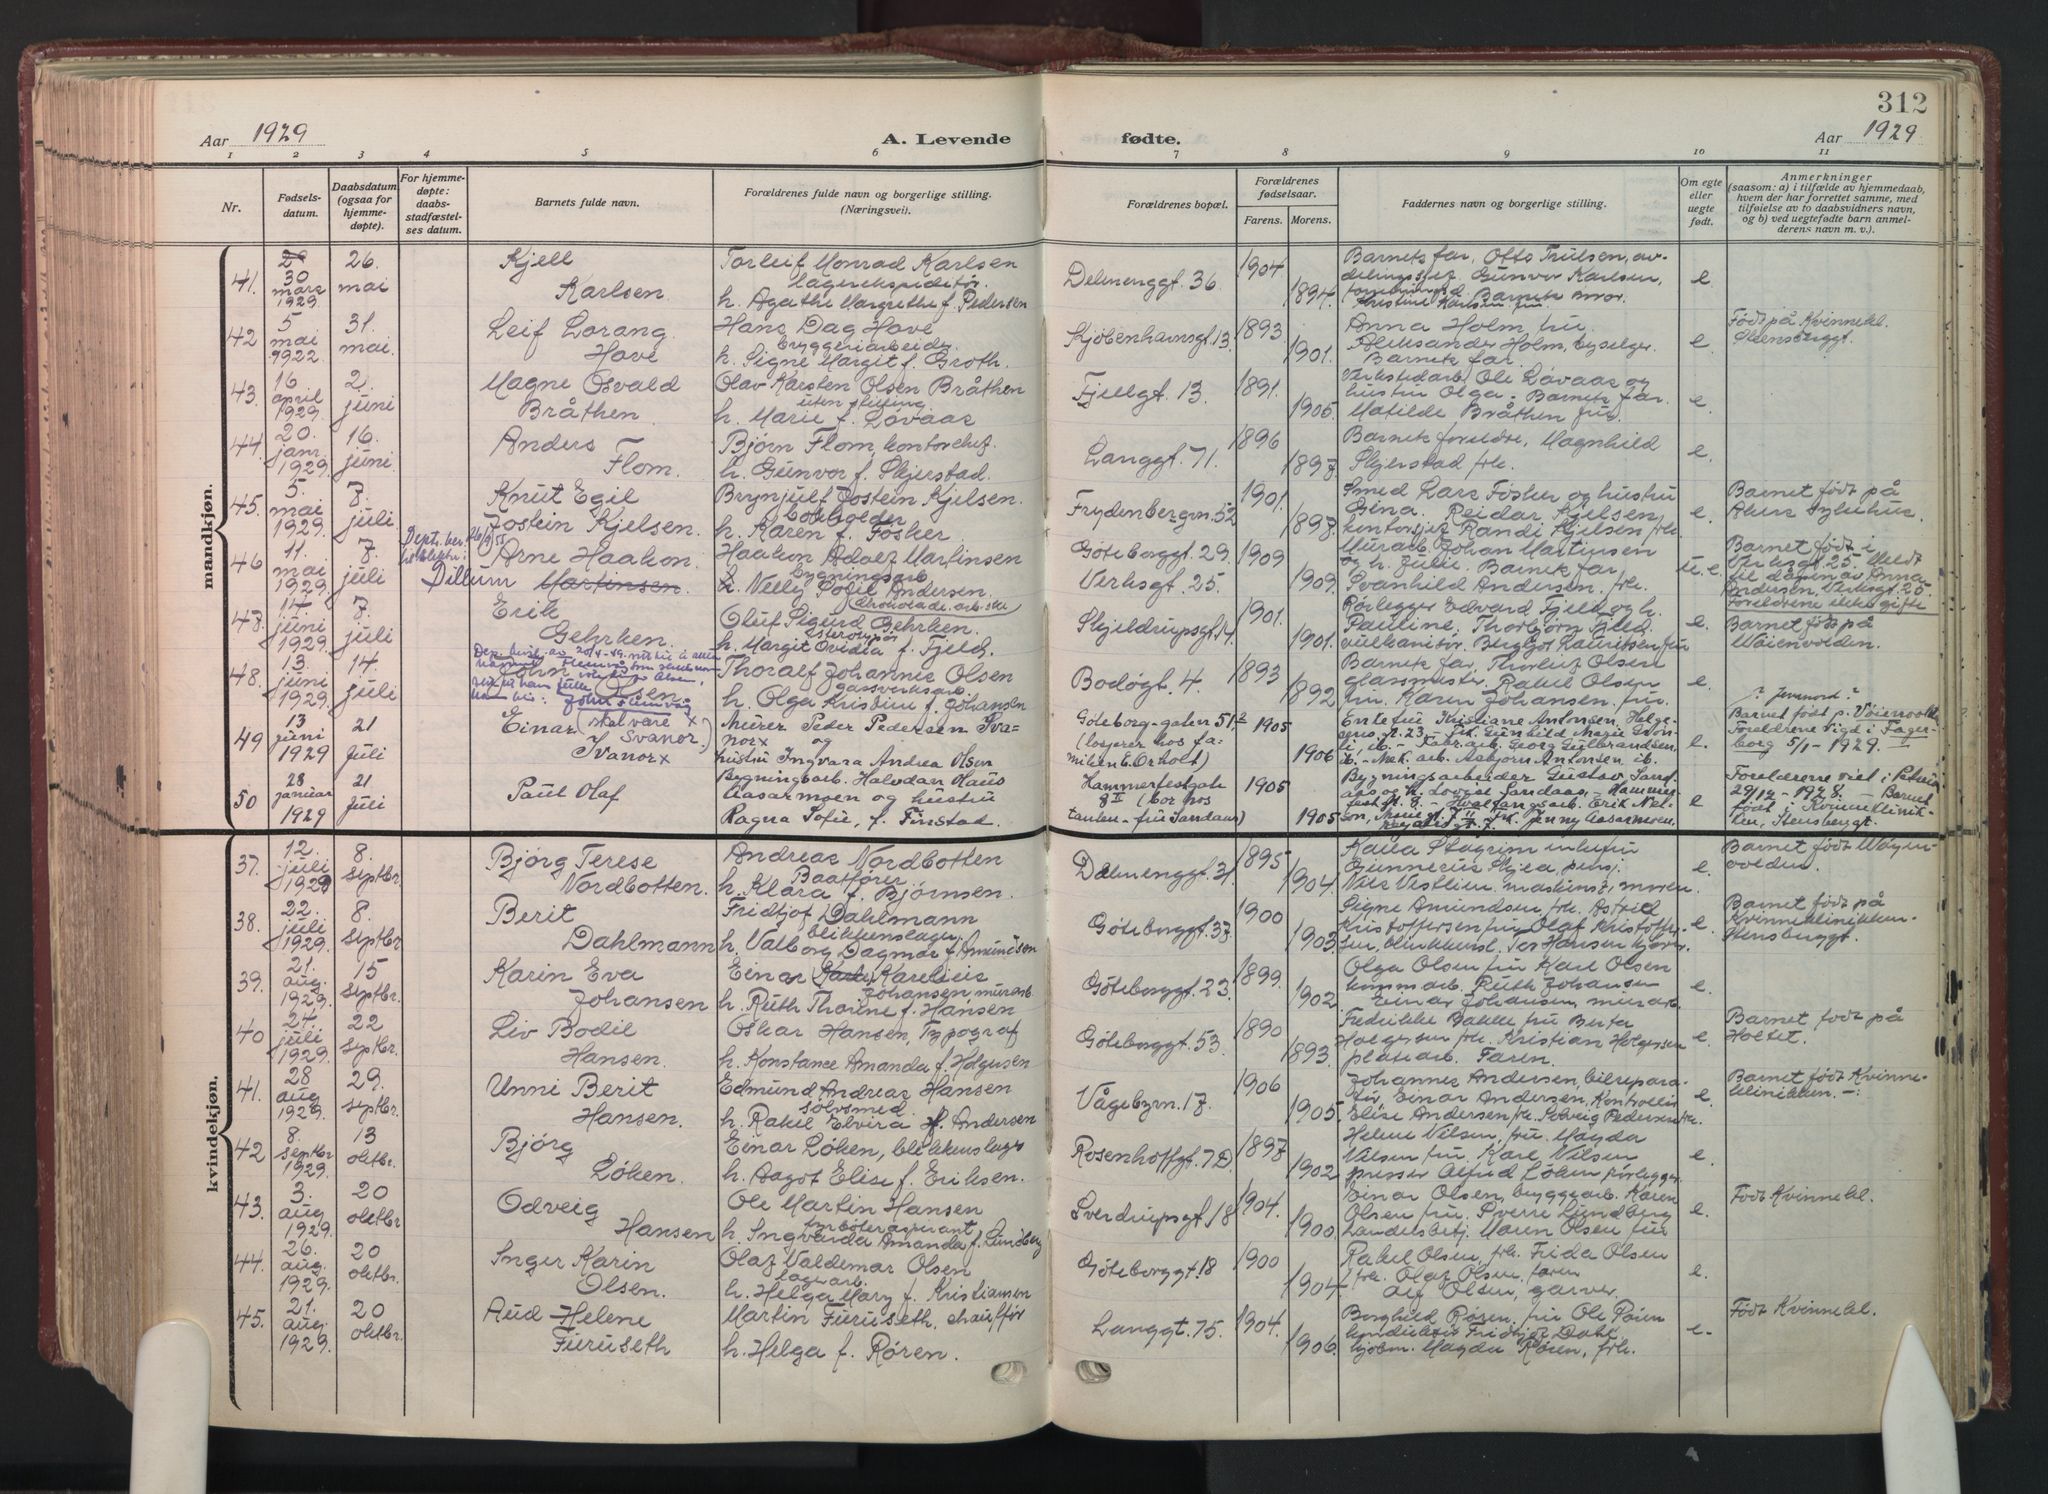 312
Aar 1929
A. Levende
fødte.
Aar 1929
1 2 3 4 5 6 7 8 9 10 11
Nr.
Fødsels-
datum.
Daabsdatum
(ogsaa for
hjemme-
døpte).
For hjemme-
døpte:
daabs-
stadfæstel-
ses datum.
Barnets fulde navn.
Forældrenes fulde navn og borgerlige stilling.
(Næringsvei).
Forældrenes bopæl.
Forældrenes
fødselsaar.
Farens. Morens.
Faddernes navn og borgerlige stilling.
Om egte
eller
uegte
født.
Anmerkninger
(saasom: a) i tilfælde av hjemmedaab,
hvem der har forrettet samme, med
tilføielse av to daabsvidners navn,
og b) ved uegtefødte barn anmel-
derens navn m. v.).
mandkjøn.
41. 30 mars 1929 26. mai
Kjell Karlsen
Torleif Monrad Karlsen
lagerekspeditør
h. Agathe Margrethe f. Pedersen
Delenenggt. 36 1904 1894.
Barnets far, Otto Trulsen, av-
delingssjef. Gunvor Karlsen,
Kristine Karlsen fru Barnets mor.
e
42 5 mai 1922 31. mai.
Leif Lorang Hove
Hans Dag Hove
bryggeriarbeider
h. Signe Margit f. Groth.
Kjøbenhavnsgt. 13. 1893 1901.
Anna Holm fru
Aleksander Holm, byselger.
Barnets far.
e
Født på Kvinnekl.
Stensberggt.
43. 16 april 1929. 2. juni
Magne Osvald Bråthen
Olav Karsten Olsen Bråthen
uten stilling
h. Marie f. Løvaas
Fjellgt. 13. 1891. 1905.
Verkstedarb. Ole Løvaas og
hustru Olga. Barnets far.
Matilde Bråthen fru
e.
44. 20. janr. 1929. 16. juni
Anders Flom.
Bjørn Flom, kontorchef.
h. Gunvor f. Skjerstad.
Langgt. 71. 1896 1897.
Barnets foreldre, Magnhild
Skjerstad frk.
e.
45. 5. mai 1929. 7. juli
Knut Egil Jostein Kjelsen.
Brynjulf Jostein Kjelsen.
h. Karen f. Fosker
Frydenbergvn. 52 1901. 1897.
Smed Lars Fosker og hustru
Reidar Kjelsen
kontorsjef Randi Kjelsen frk.
e.
Barnet født på
Akers sykehus.
46 11. mai 1929 7. juli
Dillum
Arne Haakon Martinsen
Haakon Adolf Martinsen
bygningsarb
Nelly Sofie Andersen.
Göteborggt. 29. Verksgt. 25. 1909 1909.
Murarb. Johan Martinsen
og h. Julie. Barnets far
Svanhild Andersen. frk.
u. e.
Barnet født i
Verksgt. 25. Meldt
til dåpen av Anna
Andersen, Verksgt. 25.
Foreldrene ikke gifte
47. 14. juni 1929. 7. juli
Erik Gehrken.
Oluf Sigurd Gehrken.
h. Margit Ovidia f. Fjeld.
Skjeldrupsgt. 14. 1901. 1901.
Rørlegger Edvard Fjeld og h.
Pauline, Thorbjørn Fjeld
e.
Barnet født på
Vøienvolden.
48. 13. juni 1929. 14. juli
John Olsen.
Thoralf Johannes Olsen
gassverksarb.
h. Olga Kristine f. Johansen
Bodøgt. 4. 1893 1892
Barnets far, Thorleif Olsen
glassmester. Rakel Olsen
fru. Karen Johansen. fru.
e.
49 13 juni 1929 21 juli
Einar (skal være Svanor) x
Ivanor x
Murer Peder Pedersen Iva-
nor x og
hustru Ingvara Andrea Olsen
Göteborg-gaten 51 2
(losjerer hos fa-
milien E. Orholt)
1905 1906
Enkefru Kristiane Antonsen
Asbjørn Antonsen ib.
e.
? Jevnord ?
Barnet født p. Vøienvold
Foreldrene vigd i Fager-
borg 5/1-1929.
50 28 januar 1929 21 juli
Paul Olaf
Bygningsarb. Halvdan Maus
Aasarmoen og hustru
Ragna Sofie, f. Finstad.
Hammerfestgata
8 II (bor hos
tanten - fru Sandaas)
1905 1905
Bygningsarbeider Gustav Sand-
aas og h. Lovise Sandaas - Hammer-
fest gt. 8.
Jenny Aasarmoen.
e
Foreldrene viet i
29/12-1928. - Barnet
født i Kvinneklinik-
ken, Stensberggt.
kvindekjøn.
37. 12. juli 1929 8. septbr.
Bjørg Terese Nordbotten.
Andreas Nordbotten
Baatfører
h. Klara f. Bjørnsen.
Delenenggt. 31. 1895 1904.
Gunnerius Skjea, pensj.
Nils Vestlien. maskinst, moren.
e.
Barnet født Vøyen-
volden.
38. 22. juli 1929. 8. septbr
Berit Dahlmann
Fridtjof Dahlmann
blikkenslager
h. Valborg Dagmar f. Amundsen
Göteborggt. 37 1900 1903.
Signe Amundsen frk. Astrid
Kristoffersen fru Olaf Kristoffer-
sen, blikkensl.
e.
Barnet født på
Kvinneklinikken.
Stensberggt.
39. 21. aug. 1929. 15 septbr.
Karin Eva Johansen
Einar Karelius
Johansen, murarb.
h. Ruth Thorine f. Hansen
Göteborggt. 23. 1899. 1902
Olga Olsen fru Karl Olsen
komm.arb. Ruth Johansen
Einar Johansen, murarb.
e.
40 24 juli 1929. 22 septbr.
Liv Bodil Hansen.
Oskar Hansen, Typograf
h. Konstance Amanda f. Holgersen
Göteborggt. 53. 1890 1893
Fredrikke Bakke fru Berta
Holgersen frk. Kristian Holgersen
platearb. Faren.
e.
Barnet født på
Holtet.
41. 28 aug 1929. 29. septbr.
Unni Berit Hansen.
Edmund Andreas Hansen
sølvsmed
h. Rakel Elvira f. Andersen
Vågebyvn. 17. 1906 1905.
Johannes Andersen, bilrepara-
tør, Einar Andersen, kontrollør
Elise Andersen frk. Solveig Pedersen frk.
e.
Barnet født Kvinne-
klinikken.
42 8. septbr. 1929. 13 oktbr.
Bjørg Løken.
Einar Løken, blikkenslager
h. Aagot Elise f. Eriksen.
Rosenhoffgt. 7D. 1897 1902
Helene Nilsen, fru. Magda
Nilsen fru. Karl Nilsen
presser Alfred Løken rørlegger.
e.
43. 3. aug 1929. 20 oktbr
Odveig Hansen
Ole Martin Hansen
fyrbøteraspirant
h. Ingvarda Amanda f. Lundberg
Sverdrupsgt. 18 1904. 1900.
Einar Olsen, bryggearb. Karen
Olsen fru. Sverre Lundberg
Maren Olsen fru
e.
Født Kvinnekl.
44. 26. aug. 1929. 20 oktbr.
Inger Karin Olsen.
Olaf Valdemar Olsen
lagerarb.
h. Helga Mary f. Kristiansen
Göteborggt. 18 1900 1904.
Rakel Olsen, frk. Frida Olsen
frk. Olaf Olsen, faren
Alf Olsen, garver.
e.
45. 21. aug. 1929. 20 oktbr.
Aud Helene Furuseth
Martin Furuseth, chauffør
h. Helga f. Røren.
Langgt. 75. 1904. 1906.
Borghild Røren, fru Ole Røren
konduktør Fridtjof Dahl
kjøbm. Magda Røren, frk.
e.
Født Kvinnekl.